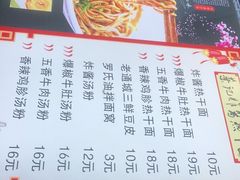 炸酱热干面 10元
爆椒牛肚热干面 19元
五香牛肉热干面 18元
香辣鸡胗热干面 18元
老通城三鲜豆皮 10元
罗氏油拌面窝 3元
炸酱汤粉 12元
爆椒牛肚汤粉 16元
五香牛肉汤粉 16元
香辣鸡胗汤粉 16元